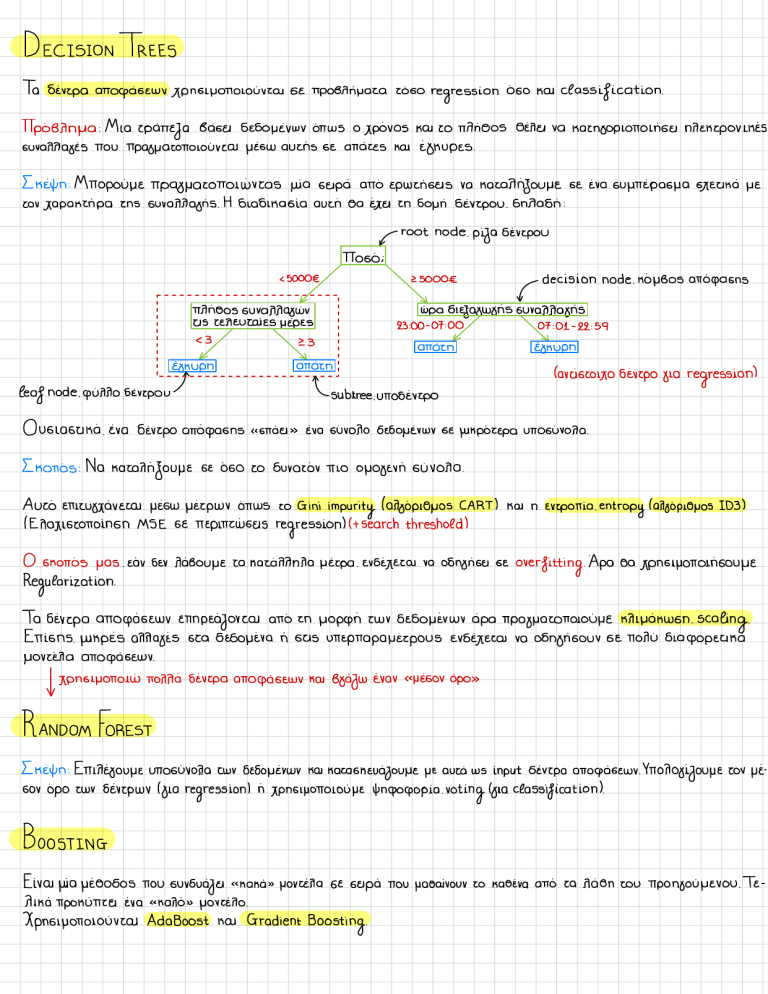 DECISION TREES
Τα δέντρα αποφάσεων χρησιμοποιούνται σε προβλήματα τόσο regression όσο και classification.
Πρόβλημα: Μια τράπεζα, βάσει δεδομένων όπως ο χρόνος και το πλήθος, θέλει να κατηγοριοποιήσει ηλεκτρονικές
συναλλαγές που πραγματοποιούνται μέσω αυτής σε απάτες και έγκυρες.
Σκέψη: Μπορούμε πραγματοποιώντας μία σειρά από ερωτήσεις να καταλήξουμε σε ένα συμπέρασμα σχετικά με
τον χαρακτήρα της συναλλαγής. Η διαδικασία αυτή θα έχει τη δομή δέντρου, δηλαδή:
root node, ρίζα δέντρου
Ποσό;
<5000€
≥5000€
decision node, κόμβος απόφασης
πλήθος συναλλαγών
τις τελευταίες μέρες
ώρα διεξαγωγής συναλλαγής
<3
≥3
23:00-07:00
07:01-22:59
έγκυρη
απάτη
απάτη
έγκυρη
(αντίστοιχο δέντρο για regression)
leaf node, φύλλο δέντρου
subtree, υποδέντρο
Ουσιαστικά, ένα δέντρο απόφασης «σπάει» ένα σύνολο δεδομένων σε μικρότερα υποσύνολα.
Σκοπός: Να καταλήξουμε σε όσο το δυνατόν πιο ομογενή σύνολα.
Αυτό επιτυγχάνεται μέσω μέτρων όπως το Gini impurity (αλγόριθμος CART) και η εντροπία, entropy (αλγόριθμος ID3)
(Ελαχιστοποίηση MSE σε περιπτώσεις regression)(+search threshold)
Ο σκοπός μας, εάν δεν λάβουμε τα κατάλληλα μέτρα, ενδέχεται να οδηγήσει σε overfitting. Άρα θα χρησιμοποιήσουμε
Regularization.
Τα δέντρα αποφάσεων επηρεάζονται από τη μορφή των δεδομένων άρα πραγματοποιούμε κλιμάκωση, scaling.
Επίσης, μικρές αλλαγές στα δεδομένα ή στις υπερπαραμέτρους ενδέχεται να οδηγήσουν σε πολύ διαφορετικά
μοντέλα αποφάσεων.
χρησιμοποιώ πολλά δέντρα αποφάσεων και βγάζω έναν «μέσον όρο»
RANDOM FOREST
Σκέψη: Επιλέγουμε υποσύνολα των δεδομένων και κατασκευάζουμε με αυτά ως input δέντρα αποφάσεων. Υπολογίζουμε τον μέ-
σον όρο των δέντρων (για regression) ή χρησιμοποιούμε ψηφοφορία, voting (για classification).
BOOSTING
Είναι μία μέθοδος που συνδυάζει «κακά» μοντέλα σε σειρά που μαθαίνουν το καθένα από τα λάθη του προηγούμενου. Τε-
λικά προκύπτει ένα «καλό» μοντέλο.
Χρησιμοποιούνται AdaBoost και Gradient Boosting.